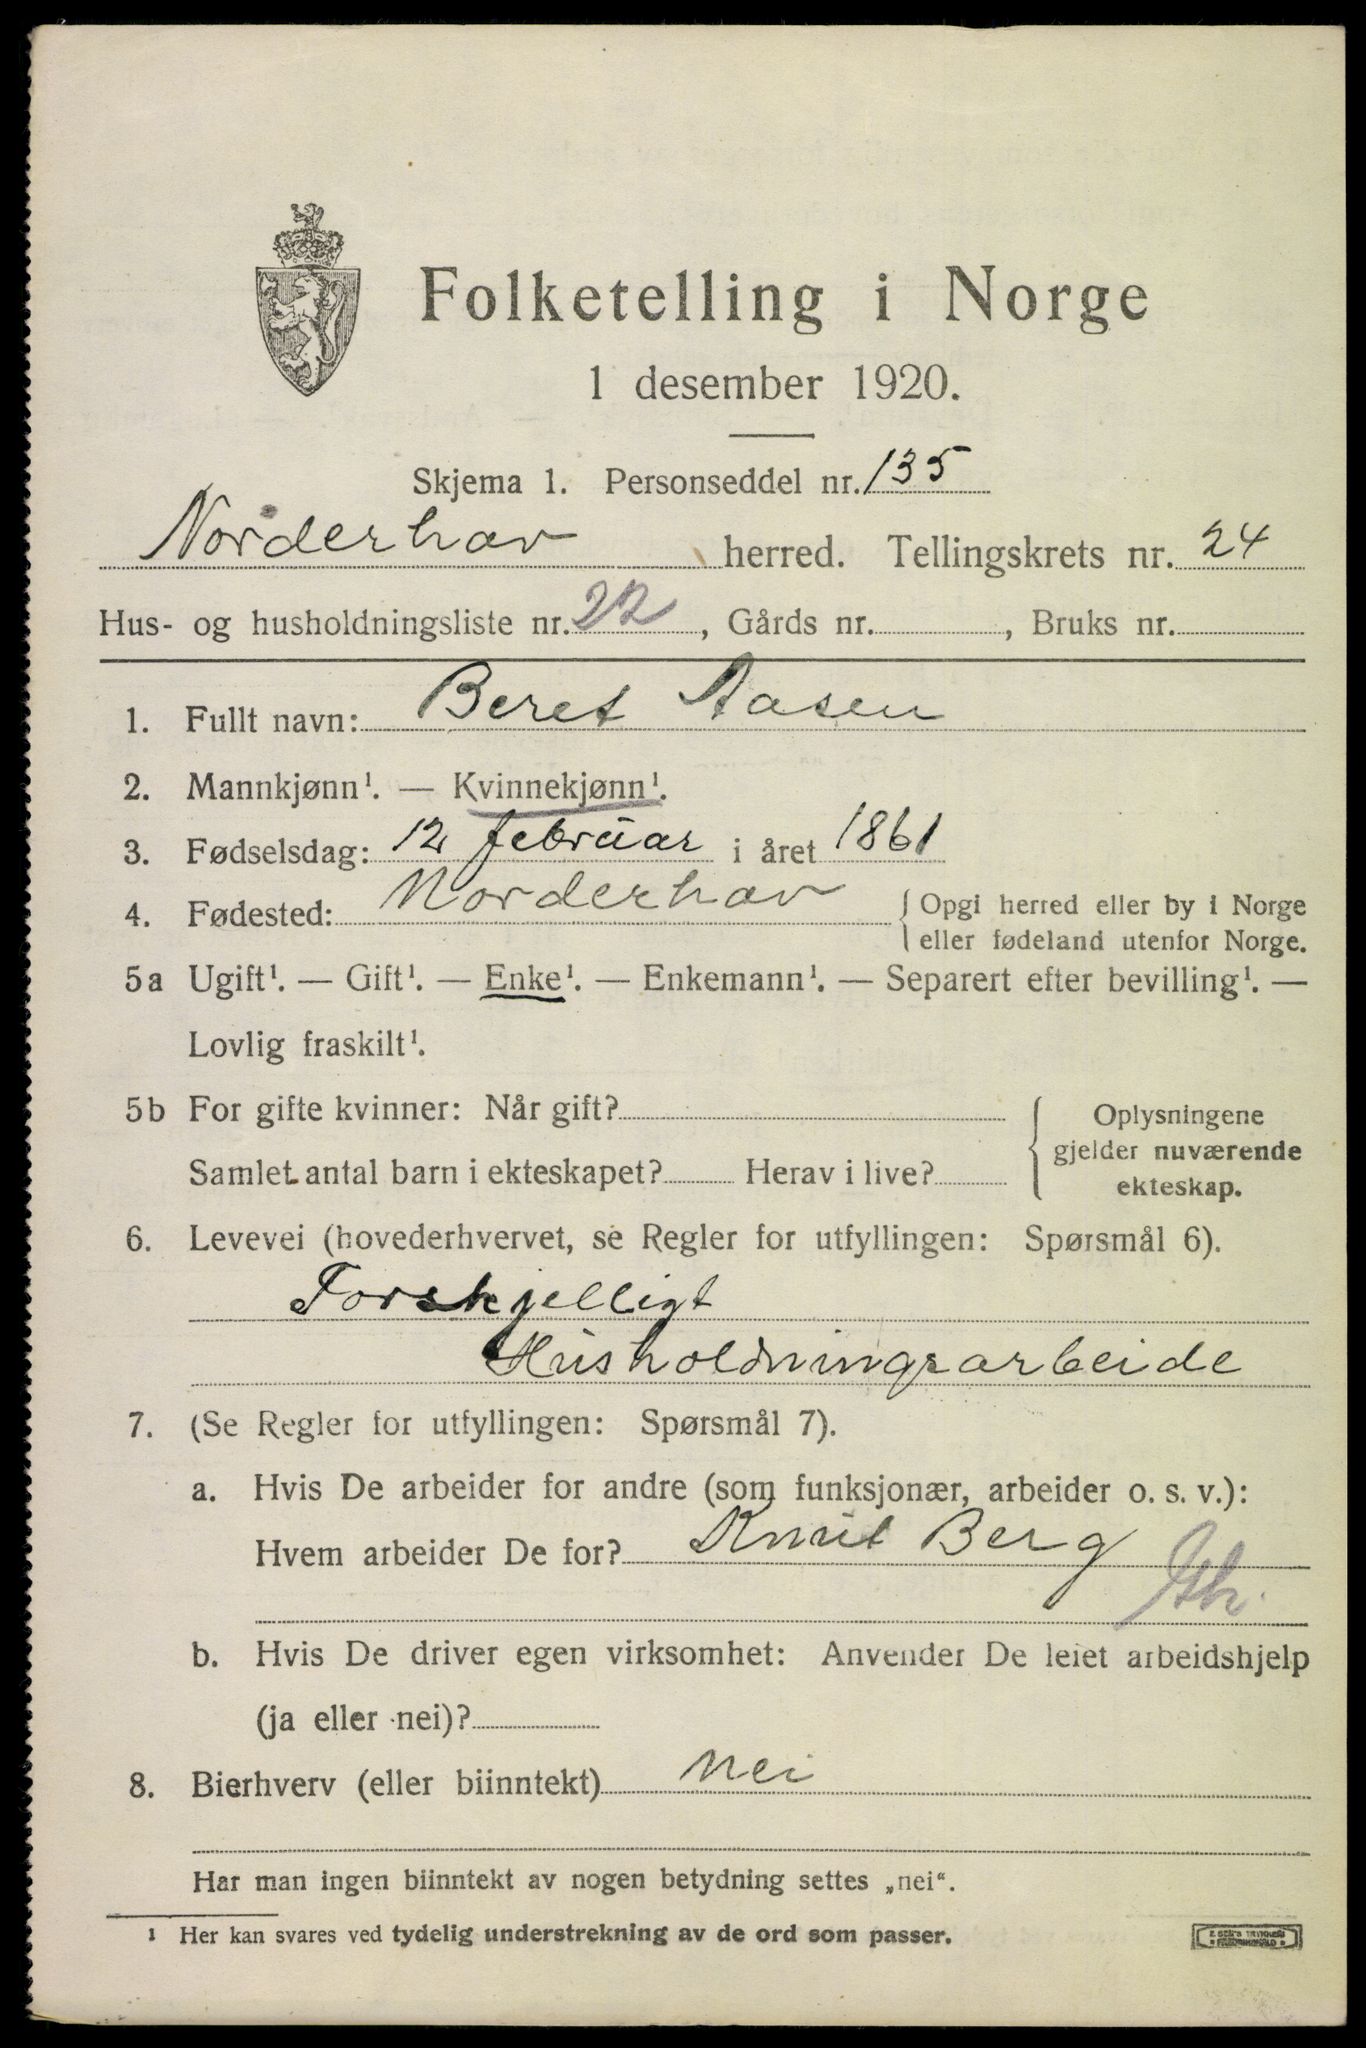 Folketelling i Norge
1 desember 1920.
Skjema 1. Personseddel nr. 135
Norderhov herred. Tellingskrets nr. 24
Hus- og husholdningsliste nr. 22, Gårds nr. , Bruks nr.
1. Fullt navn: Beret Aasen
2. Mannkjønn¹. — Kvinnekjønn¹.
3. Fødselsdag: 12 februar i året 1861
4. Fødested: Norderhov { Opgi herred eller by i Norge
eller fødeland utenfor Norge.
5a Ugift¹. — Gift¹. — Enke¹. — Enkemann¹. — Separert efter bevilling¹. —
Lovlig fraskilt¹.
5b For gifte kvinner: Når gift? { Oplysningene
gjelder nuværende
Samlet antal barn i ekteskapet? Herav i live?
ekteskap.
6. Levevei (hovederhvervet, se Regler for utfyllingen: Spørsmål 6).
Forskjelligt
Husholdningsarbeide
7. (Se Regler for utfyllingen: Spørsmål 7).
a. Hvis De arbeider for andre (som funksjonær, arbeider o. s. v.):
Hvem arbeider De for? Knut Berg
b. Hvis De driver egen virksomhet: Anvender De leiet arbeidshjelp
(ja eller nei)?
8. Bierhverv (eller biinntekt) Nei
Har man ingen biinntekt av nogen betydning settes „nei“.
¹ Her kan svares ved tydelig understrekning av de ord som passer.